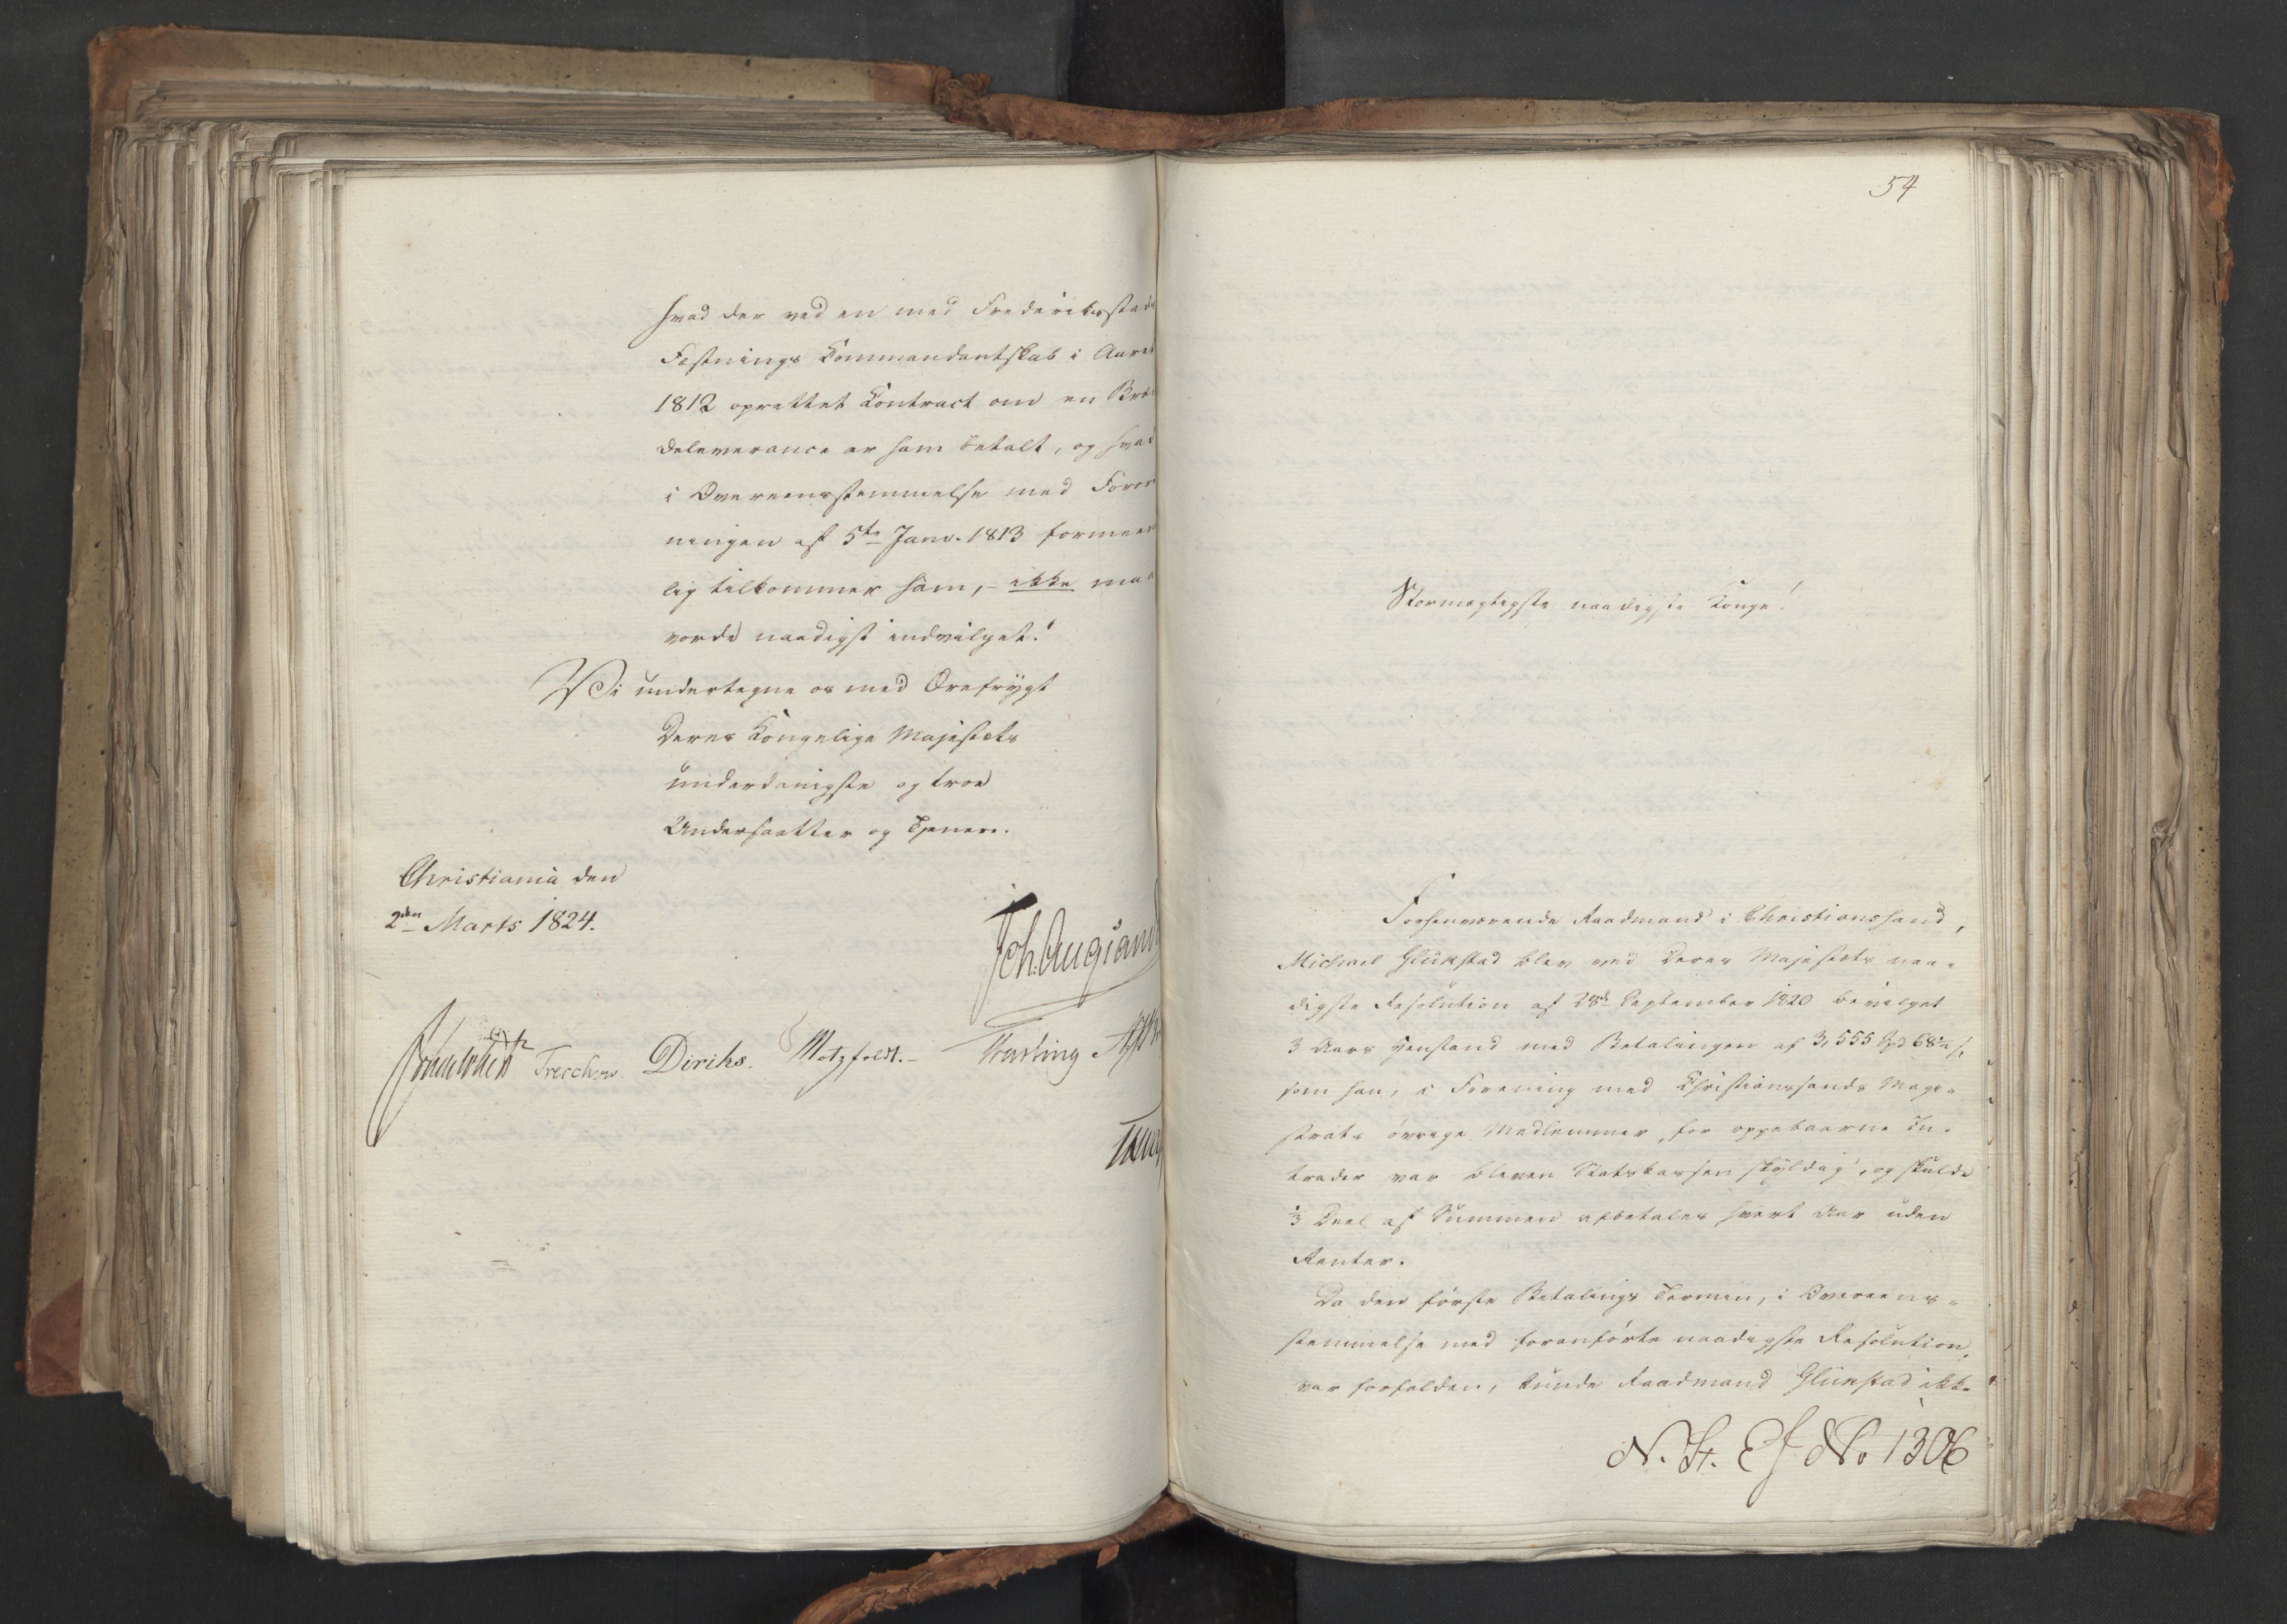 hvad der ved en med Frederiksstads
Fæstnings Kommandantskab i Aaret
1812 oprettet Kontract om en Brø-
deleverance er ham betalt, og hvad
i Overeensstemmelse med Foror
ningen af 5te Janv. 1813 formeent
lig tilkommer ham, - ikke maa
vorde naadigst indvilget."
Vi undertegne os med Ærefrygt
Deres Kongelige Majestæts
underdanigste og troe
Undersaatter og Tjenere.
Christiania den
2den Marts 1824.
Joh. Aug: Sand
Sommerhielm Treschow. Diriks. Motzfeldt.
Fasting
54
Stormægtigste naadigste Konge!
Forhenværende Raadmand i Christianssand,
Michael Glückstad blev ved Deres Majestæts naa-
digste Resolution af 28de September 1820 bevilget
3 Aars Henstand med Betalingen af 3,555 Spd 68 s,
som han, i Forening med Christianssands Magi-
strats øvrige Medlemmer, for oppebaarne In-
trader var bleven Statskassen skyldig, og skulde
1/3 Deel af Summen afbetales hvert Aar uden
Renter.
Da den første Betalings Termin, i Overeens-
stemmelse med foranførte naadigste Resolution,
var forfalden, kunde Raadmand Glückstad ikke
N. St. Ex. No 1306